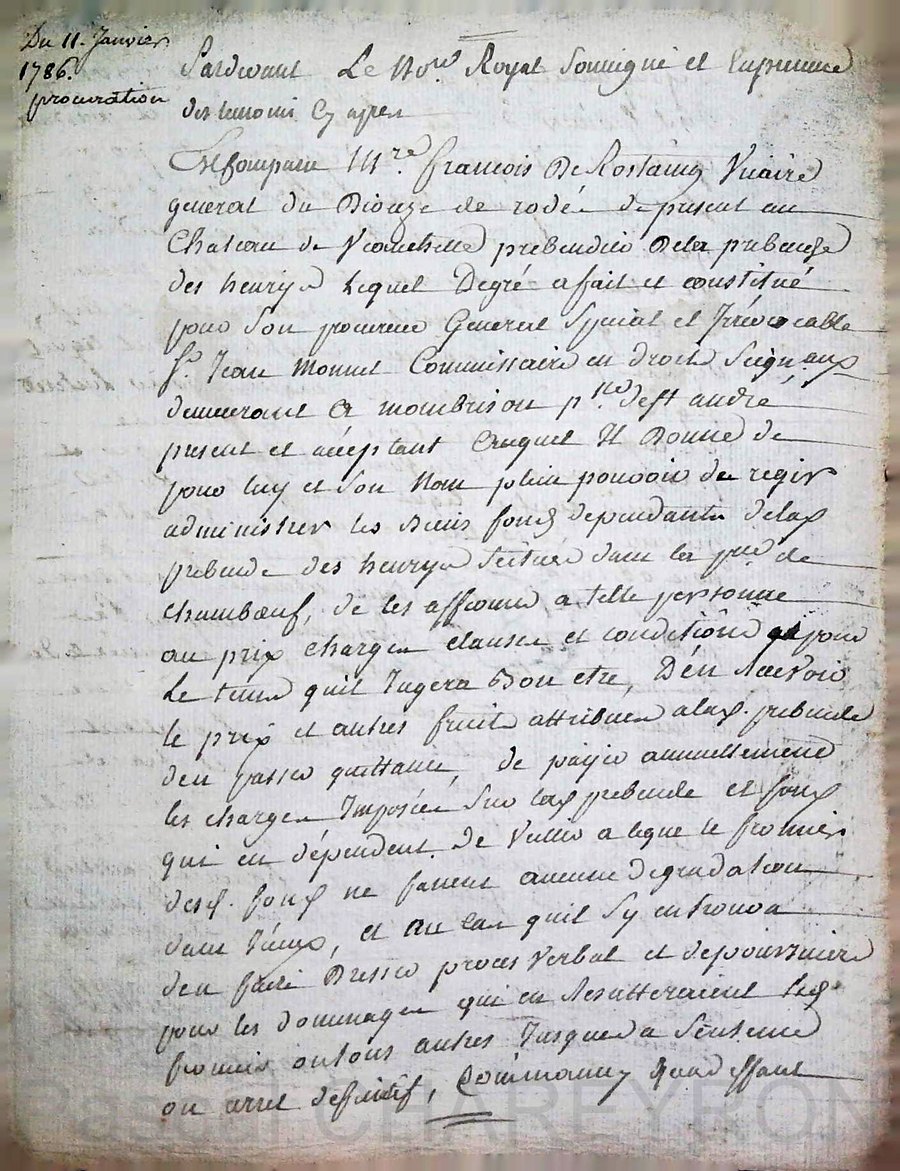 Du 11. Janvier
1786.
procuration
Pardevant Le No.re Royal Soussigné et En presence
des temoins Cy apres
Est Comparu M.re francois De Rostaing Vicaire
general du Dioceze de rodés de present au
Chateau de prebendier De la prebende
des henrys Lequel Degré a fait et constitué
pour Son procureur General Special et Irrévocable
S.r Jean Monnet Commissaire en droits Seign.aux
demeurant a monbrison p.sse de st andré
present et acceptant auquel Il Donne de
pour luy et Son Nom plein pouvoir de regir
administrer les Biens fonds dependants de lad
prebende des henrys Scitués dans la p.sse de
Chambœuf, de les affermer a telle personne
au prix charges clauses et conditions pour
Le tems quil Jugera Bon etre, D'en Recevoir
le prix et autres fruits attribues a lad. prebende
den passer quittance, de payer annuellement
les charges Imposées Sur lad prebende et fonds
qui en dépendent. de Veiller a ceque le fermier
desd. fonds ne fassent aucune degradation
dans Iceux, et au cas quil Sy en trouva
den faire Dresser proces Verbal et de poursuivre
pour les dommages qui en Resulteraient led
fermier ou tous autres Jusques a Sentence
ou arret definitif,
Pascal CHAREYRON